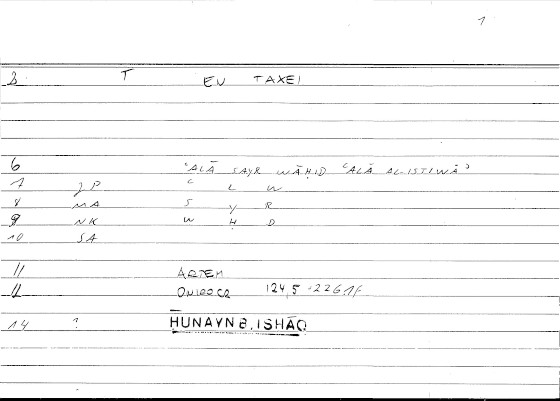 1
3 T EU TAXEI
6 ʿALĀ SAYR WĀḤID ʿALĀ AL-ISTIWĀʾ
7 JP ʿ L W
8 MA S Y R
9 NK W Ḥ D
10 SA
11 ARTEM
12 ONIROCR 124,5 = 226
14 ? ḤUNAYN B. ISḤĀQ